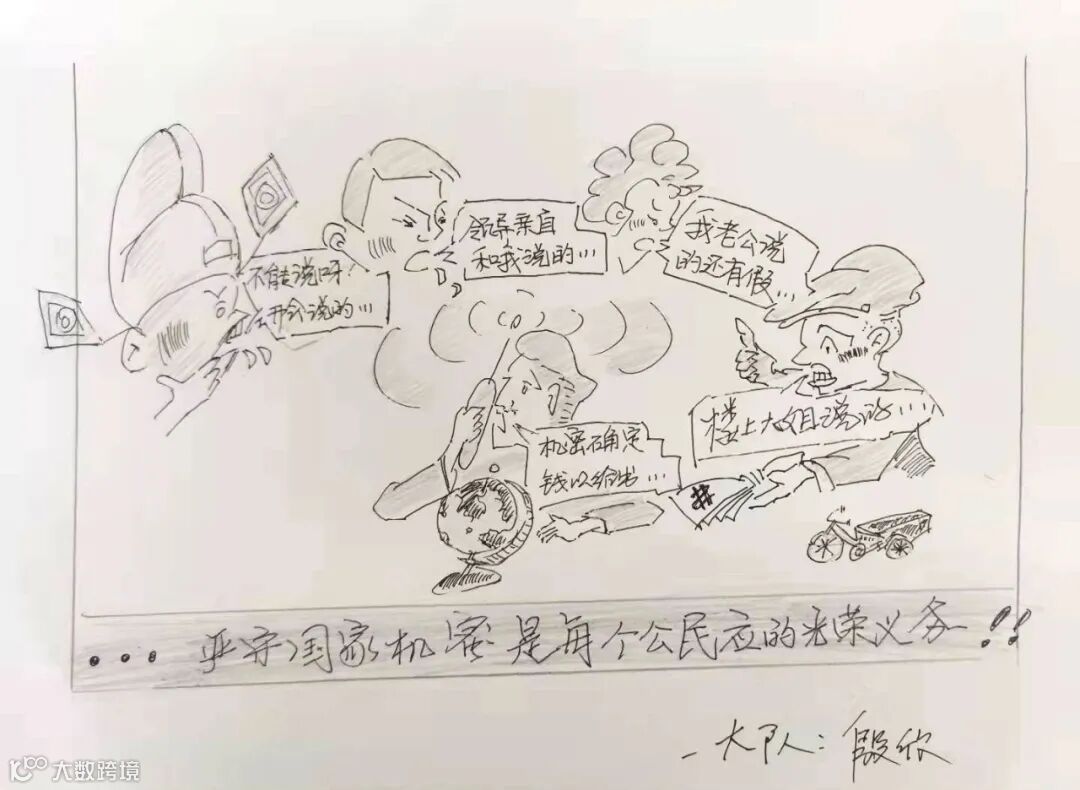 不能说呀！
去开会说的…
领导亲自
和我说的…
我老公说
的还有假…
楼上大姐说的……
机密确定
钱以给出…
#
…严守国家机密是每个公民应的光荣义务!!
－大队：殷欣
大数跨境